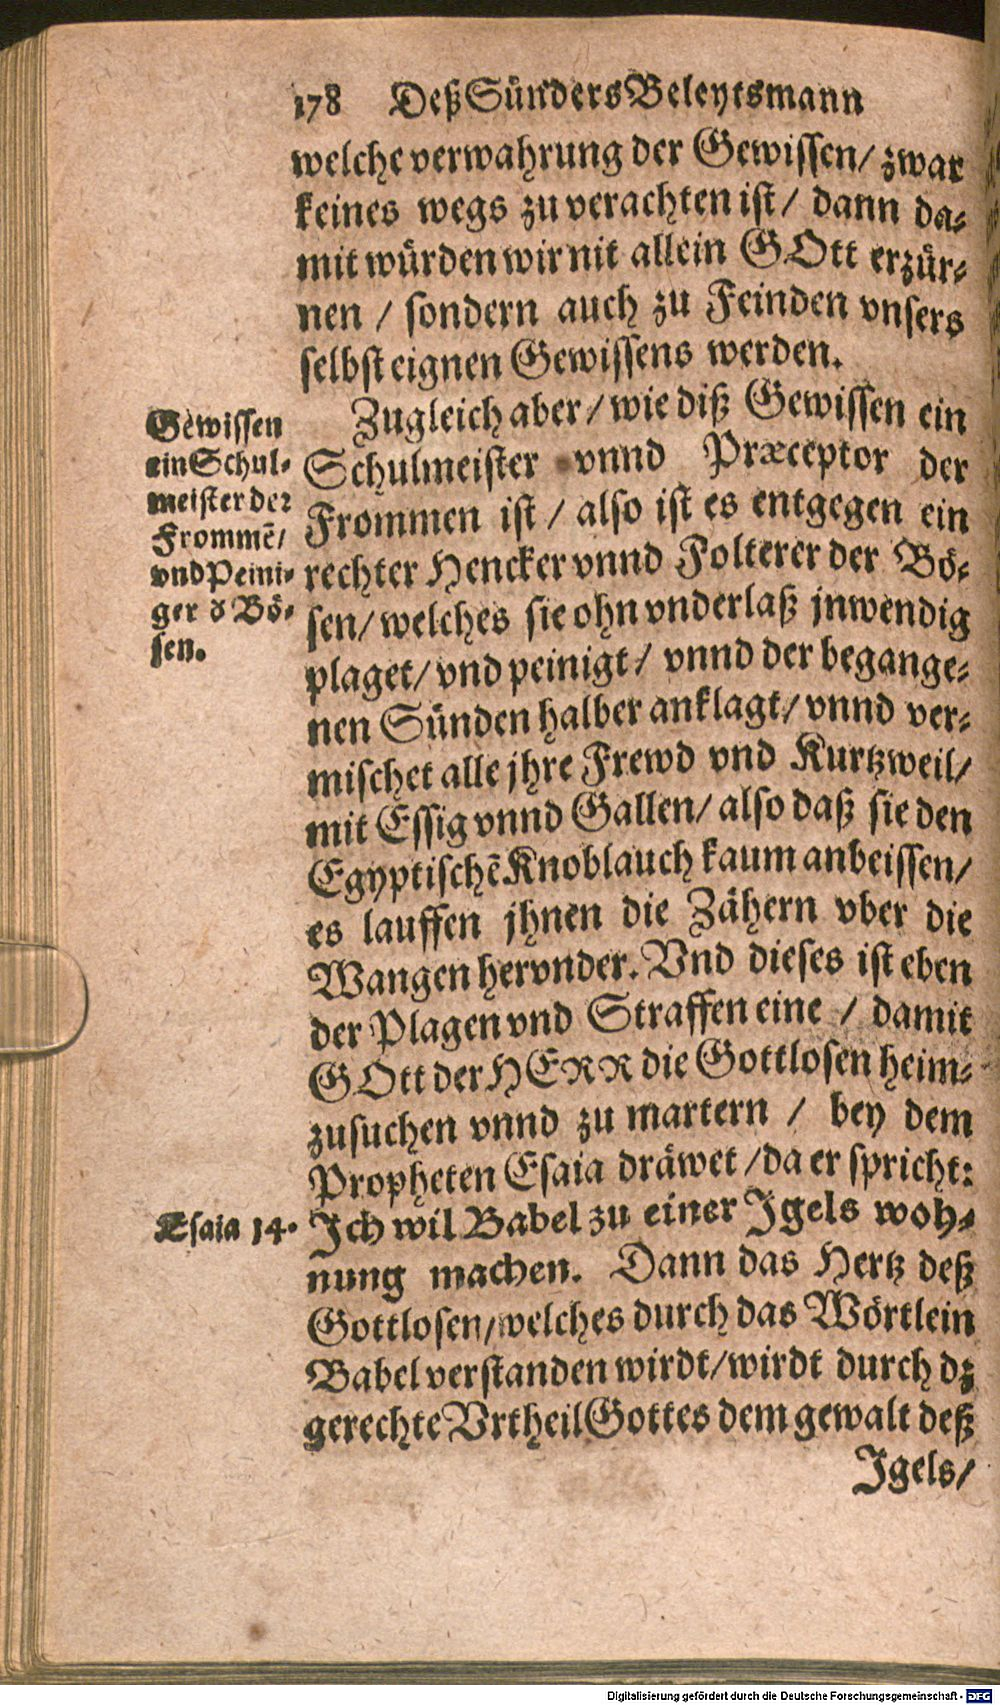 178 Deß Sünders Beleytsmann
welche verwahrung der Gewissen/ zwar
keines wegs zu verachten ist/ dann da-
mit würden wir nit allein GOtt erzür-
nen / sondern auch zu Feinden vnsers
selbst eignen Gewissens werden.
Zugleich aber/ wie diß Gewissen ein
Schulmeister vnnd Præceptor der
Frommen ist / also ist es entgegen ein
rechter Hencker vnnd Folterer der Bö-
sen/ welches sie ohn vnderlaß jnwendig
plaget/ vnd peinigt/ vnnd der begange-
nen Sünden halber anklagt/ vnnd ver-
mischet alle jhre Frewd vnd Kurtzweil/
mit Essig vnnd Gallen/ also daß sie den
Egyptischē Knoblauch kaum anbeissen/
es lauffen jhnen die Zähern vber die
Wangen hervnder. Vnd dieses ist eben
der Plagen vnd Straffen eine / damit
GOtt der HERR die Gottlosen heim-
zusuchen vnnd zu martern / bey dem
Propheten Esaia dräwet / da er spricht:
Ich wil Babel zu einer Igels woh-
nung machen. Dann das Hertz deß
Gottlosen/ welches durch das Wörtlein
Babel verstanden wirdt/ wirdt durch dz
gerechte Vrtheil Gottes dem gewalt deß
Igels/
Gewissen
ein Schul-
meister der
Frommē/
vnd Peini-
ger d̕ Bö-
sen.
Esaia 14.
Digitalisierung gefördert durch die Deutsche Forschungsgemeinschaft - DFG